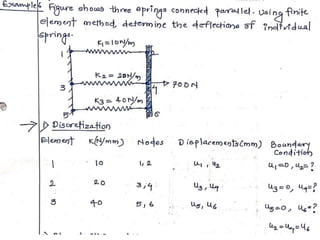 Example 6 Figure shows three springs connected parallel. Using finite
element method, determine the deflections of individual
springs.
K₁=10N/m
1 2
K₂ = 20N/m
3 4 700N
K₃ = 40N/m
5 6
1) Discretization
Element K(N/mm) Nodes Displacements(mm) Boundary
Condition
1 10 1,2 u₁, u₂ u₁=0, u₂=?
2 20 3,4 u₃, u₄ u₃=0, u₄=?
3 40 5,6 u₅, u₆ u₅=0, u₆=?
u₂=u₄=u₆